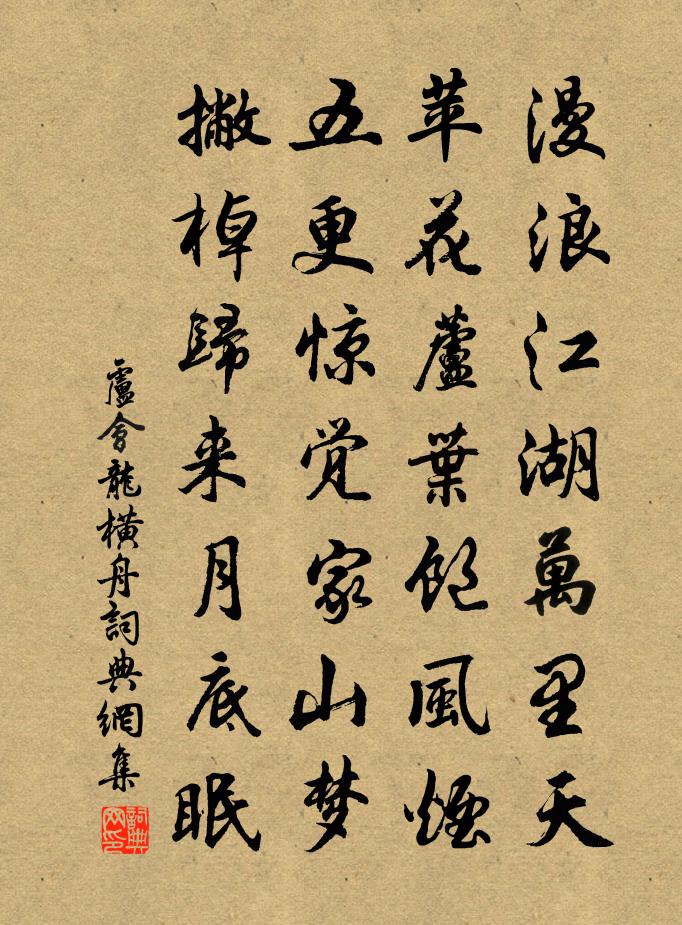 漫浪江湖萬里天
苹花蘆葉飽風煙
五更惊觉家山梦
撇棹歸来月底眠
盧會龍橫舟詞典網集
詞典網印